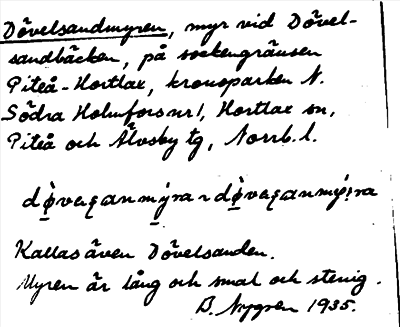 Dövelsandmyren, myr vid Dövel-
sandbäcken, på sockengränsen
Piteå - Hortlax, kronoparken N.
Södra Holmfors nr 1, Hortlax sn,
Piteå och Älvsby tg, Norrb. l.
Kallas även Dövelsanden.
Myren är lång och smal och stenig.
B. Nygren 1935.